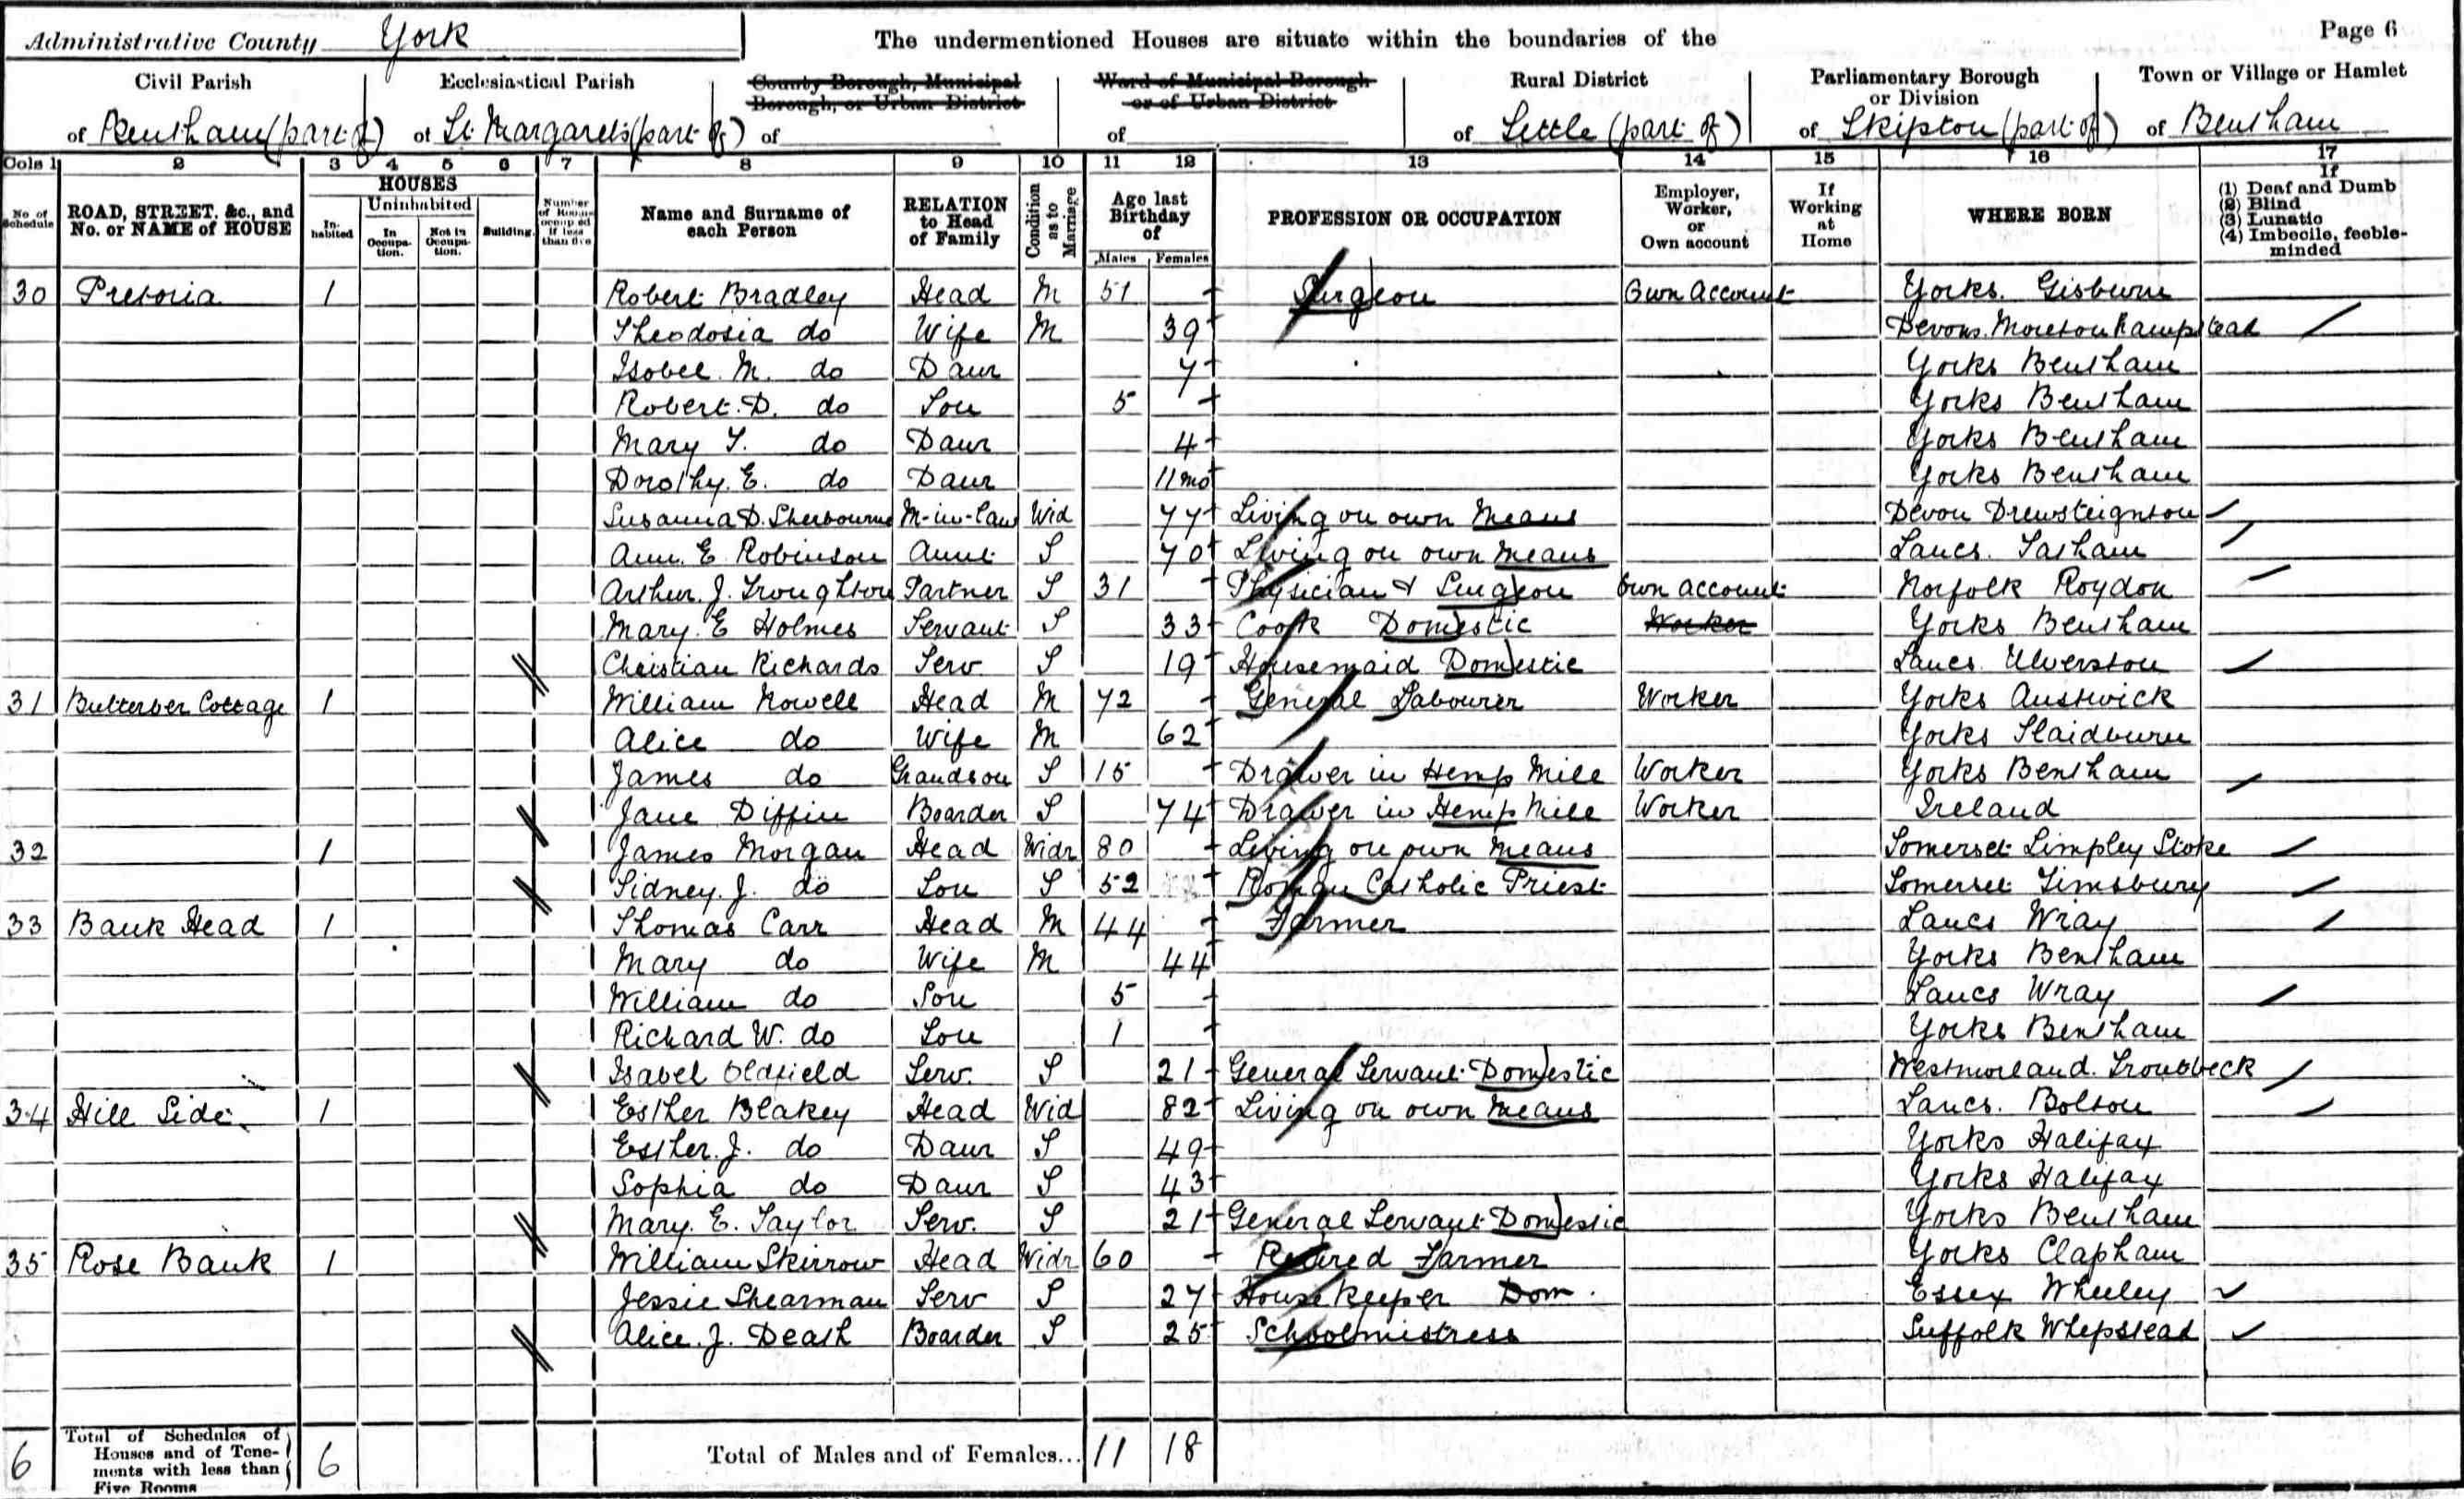 Administrative County York
The undermentioned Houses are situate within the boundaries of the
Page 6
Civil Parish
of Bentham (part of)
Ecclesiastical Parish
of St. Margarets (part of)
County Borough, Municipal
Borough, or Urban District
of
Ward of Municipal Borough
or of Urban District
of
Rural District
of Settle (part of)
Parliamentary Borough
or Division
of Skipton (part of)
Town or Village or Hamlet
of Bentham
Cols 1 2 3 4 5 6 7 8 9 10 11 12 13 14 15 16 17
No of Schedule
ROAD, STREET, &c., and
No. or NAME of HOUSE
HOUSES
In-habited
Uninhabited
In Occupa-tion.
Not in Occupa-tion.
Building.
Number of Rooms occupied if less than five
Name and Surname of
each Person
RELATION
to Head
of Family
Condition as to Marriage
Age last
Birthday
of
Males Females
PROFESSION OR OCCUPATION
Employer,
Worker,
or
Own account
If
Working
at
Home
WHERE BORN
If
(1) Deaf and Dumb
(2) Blind
(3) Lunatic
(4) Imbecile, feeble-
minded
30 Pretoria 1 Robert Bradley Head M 51 Surgeon Own Account Yorks. Gisburn
Theodosia do Wife M 39 Devons. Moretonhampstead
Isobel. M. do Daur 7 Yorks Bentham
Robert. D. do Son 5 Yorks Bentham
Mary T. do Daur 4 Yorks Bentham
Dorothy. E. do Daur 11 mo Yorks Bentham
Susanna D. Sherbourne M-in-law Wid 77 Living on own Means Devon Drewsteignton
Ann. E. Robinson Aunt S 70 Living on own Means Lancs. Tatham
Arthur. J. Troughton Partner S 31 Physician & Surgeon Own account Norfolk Roydon
Mary. E Holmes Servant S 33 Cook Domestic Worker Yorks Bentham
Christian Richards Serv. S 19 Housemaid Domestic Lancs. Ulverston
31 Butterber Cottage 1 William Nowell Head M 72 General Labourer Worker Yorks Austwick
Alice do Wife M 62 Yorks Slaidburn
James do Grandson S 15 Drawer in Hemp Mill Worker Yorks Bentham
Jane Diffin Boarder S 74 Drawer in Hemp Mill Worker Ireland
32 1 James Morgan Head Widr 80 Living on own Means Somerset Limpley Stoke
Sidney. J. do Son S 52 Roman Catholic Priest Somerset Timsbury
33 Bank Head 1 Thomas Carr Head M 44 Farmer Lancs Wray
Mary do Wife M 44 Yorks Bentham
William do Son 5 Lancs Wray
Richard W. do Son 1 Yorks Bentham
Isabel Oldfield Serv. S 21 General Servant Domestic Westmorland. Troutbeck
34 Hill Side 1 Esther Blakey Head Wid 82 Living on own Means Lancs. Bolton
Esther. J. do Daur S 49 Yorks Halifax
Sophia do Daur S 43 Yorks Halifax
Mary. E. Taylor Serv. S 21 General Servant Domestic Yorks Bentham
35 Rose Bank 1 William Skirrow Head Widr 60 Retired Farmer Yorks Clapham
Jessie Shearman Serv S 27 House Keeper Dom. Essex Wheeley
Alice. J. Death Boarder S 25 Schoolmistress Suffolk Whepstead
6 Total of Schedules of
Houses and of Tene-
ments with less than
Five Rooms 6 Total of Males and of Females... 11 18